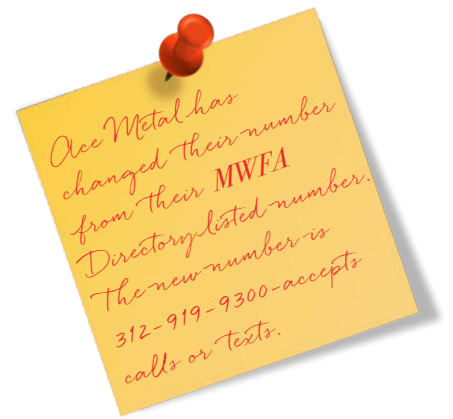 Ace Metal has
changed their number
from their MWFA
Directory listed number.
The new number is
312-919-9300-accepts
calls or texts.